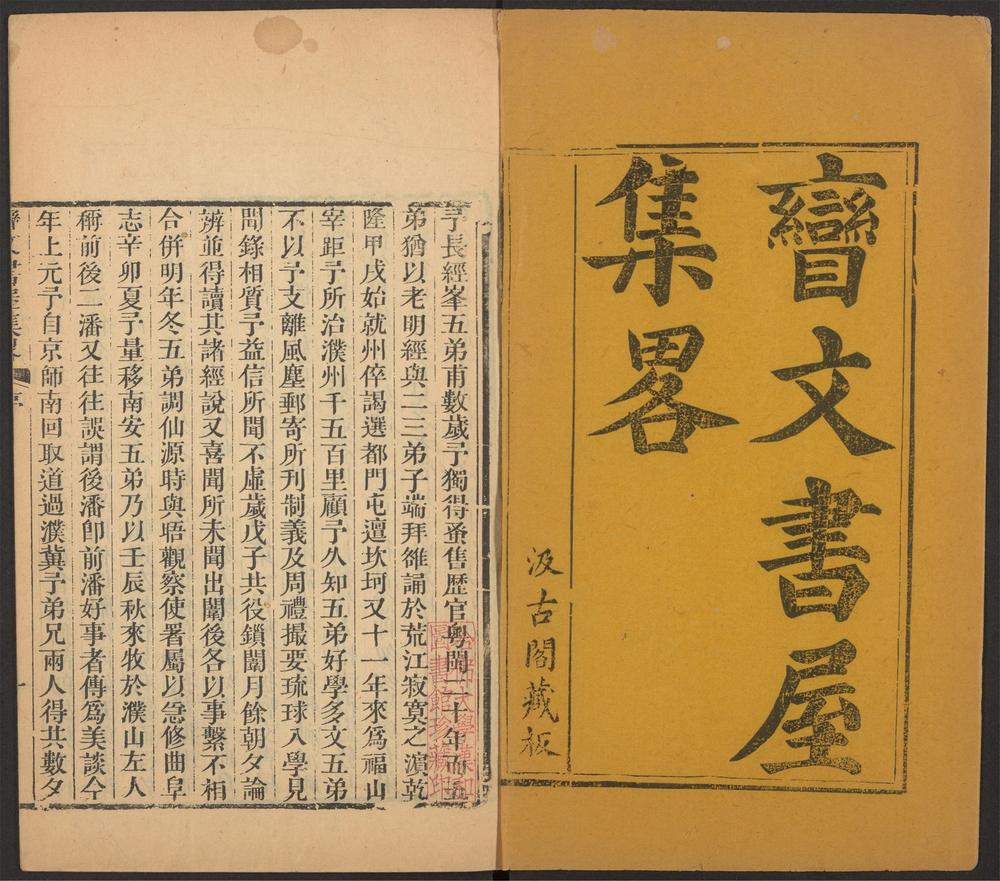 矕文書屋
集畧
汲古閣藏板
予長經峯五弟甫數歲予獨得蚤售歷官粵閩二十年而五
弟猶以老明經與二三弟子端拜雒誦於荒江寂寞之濵乾
隆甲戌始就州倅謁選都門屯邅坎坷又十一年來爲福山
宰距予所治濮州千五百里顧予久知五弟好學多文五弟
不以予支離風塵郵寄所刋制義及周禮撮要琉球入學見
聞錄相質予益信所聞不虛歲戊子共役鎖闈月餘朝夕論
辨並得讀其諸經說又喜聞所未聞出闈後各以事繫不相
合併明年冬五弟調仙源時與晤觀察使署屬以急修曲阜
志辛卯夏予量移南安五弟乃以壬辰秋來牧於濮山左人
稱前後二潘又往往誤謂後潘卽前潘好事者傳爲美談今
年上元予自京師南回取道過濮冀予弟兄兩人得共數夕
序
一